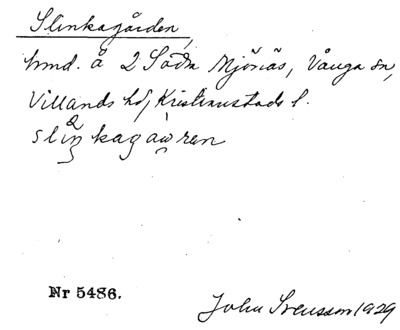 Slinkagården,
hmd. å 2 Södra Mjönäs, Vånga sn,
Villands hd, Kristianstads l.
slinkagaren
Nr 5486.
John Svensson 1929